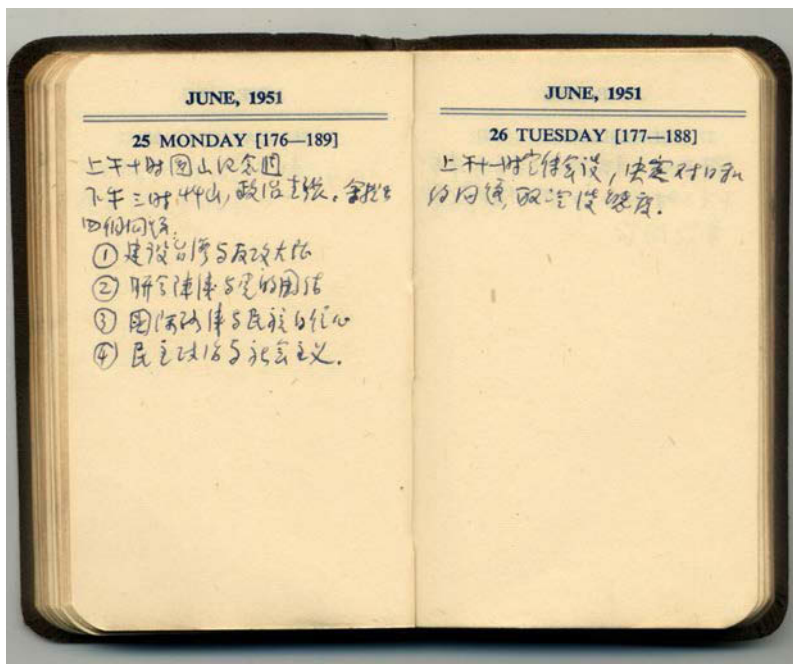 JUNE, 1951
25 MONDAY [176—189]
上午十时圆山纪念週
下午三时草山,政治主张。余提出
四個问题.
① 建设台湾与反攻大陆
② 联合陣线与党的团结
③ 国际路线与民族自信心
④ 民主政治与社会主义.
JUNE, 1951
26 TUESDAY [177—188]
上午十一时官传会议,决定对日和
约问题,取冷淡態度.